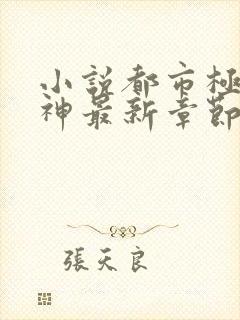 小説都市極
神最新章節
張天良